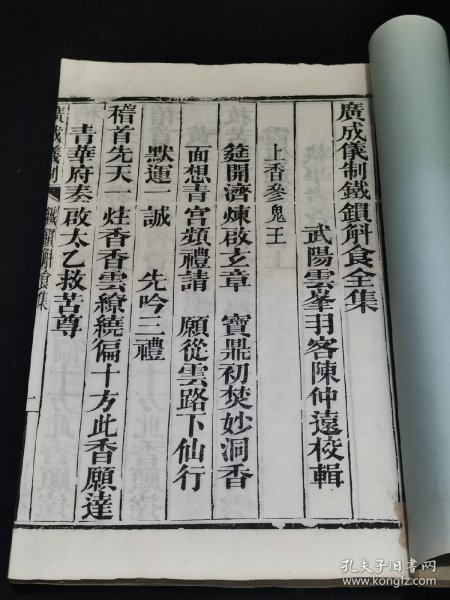 廣成儀制鐵鎖斛食全集
武陽雲峯羽客陳仲遠校輯
上香參鬼王
筵開濟煉啟玄章 寶鼎初焚妙洞香
面想青宮頻禮請 願從雲路下仙行
默運一誠 先吟三禮
稽首先天一炷香香雲繚繞徧十方此香願達
青華府奏啟太乙救苦尊
廣成儀制 鐵鎖斛食集 一
孔夫子旧书网
www.kongfz.com